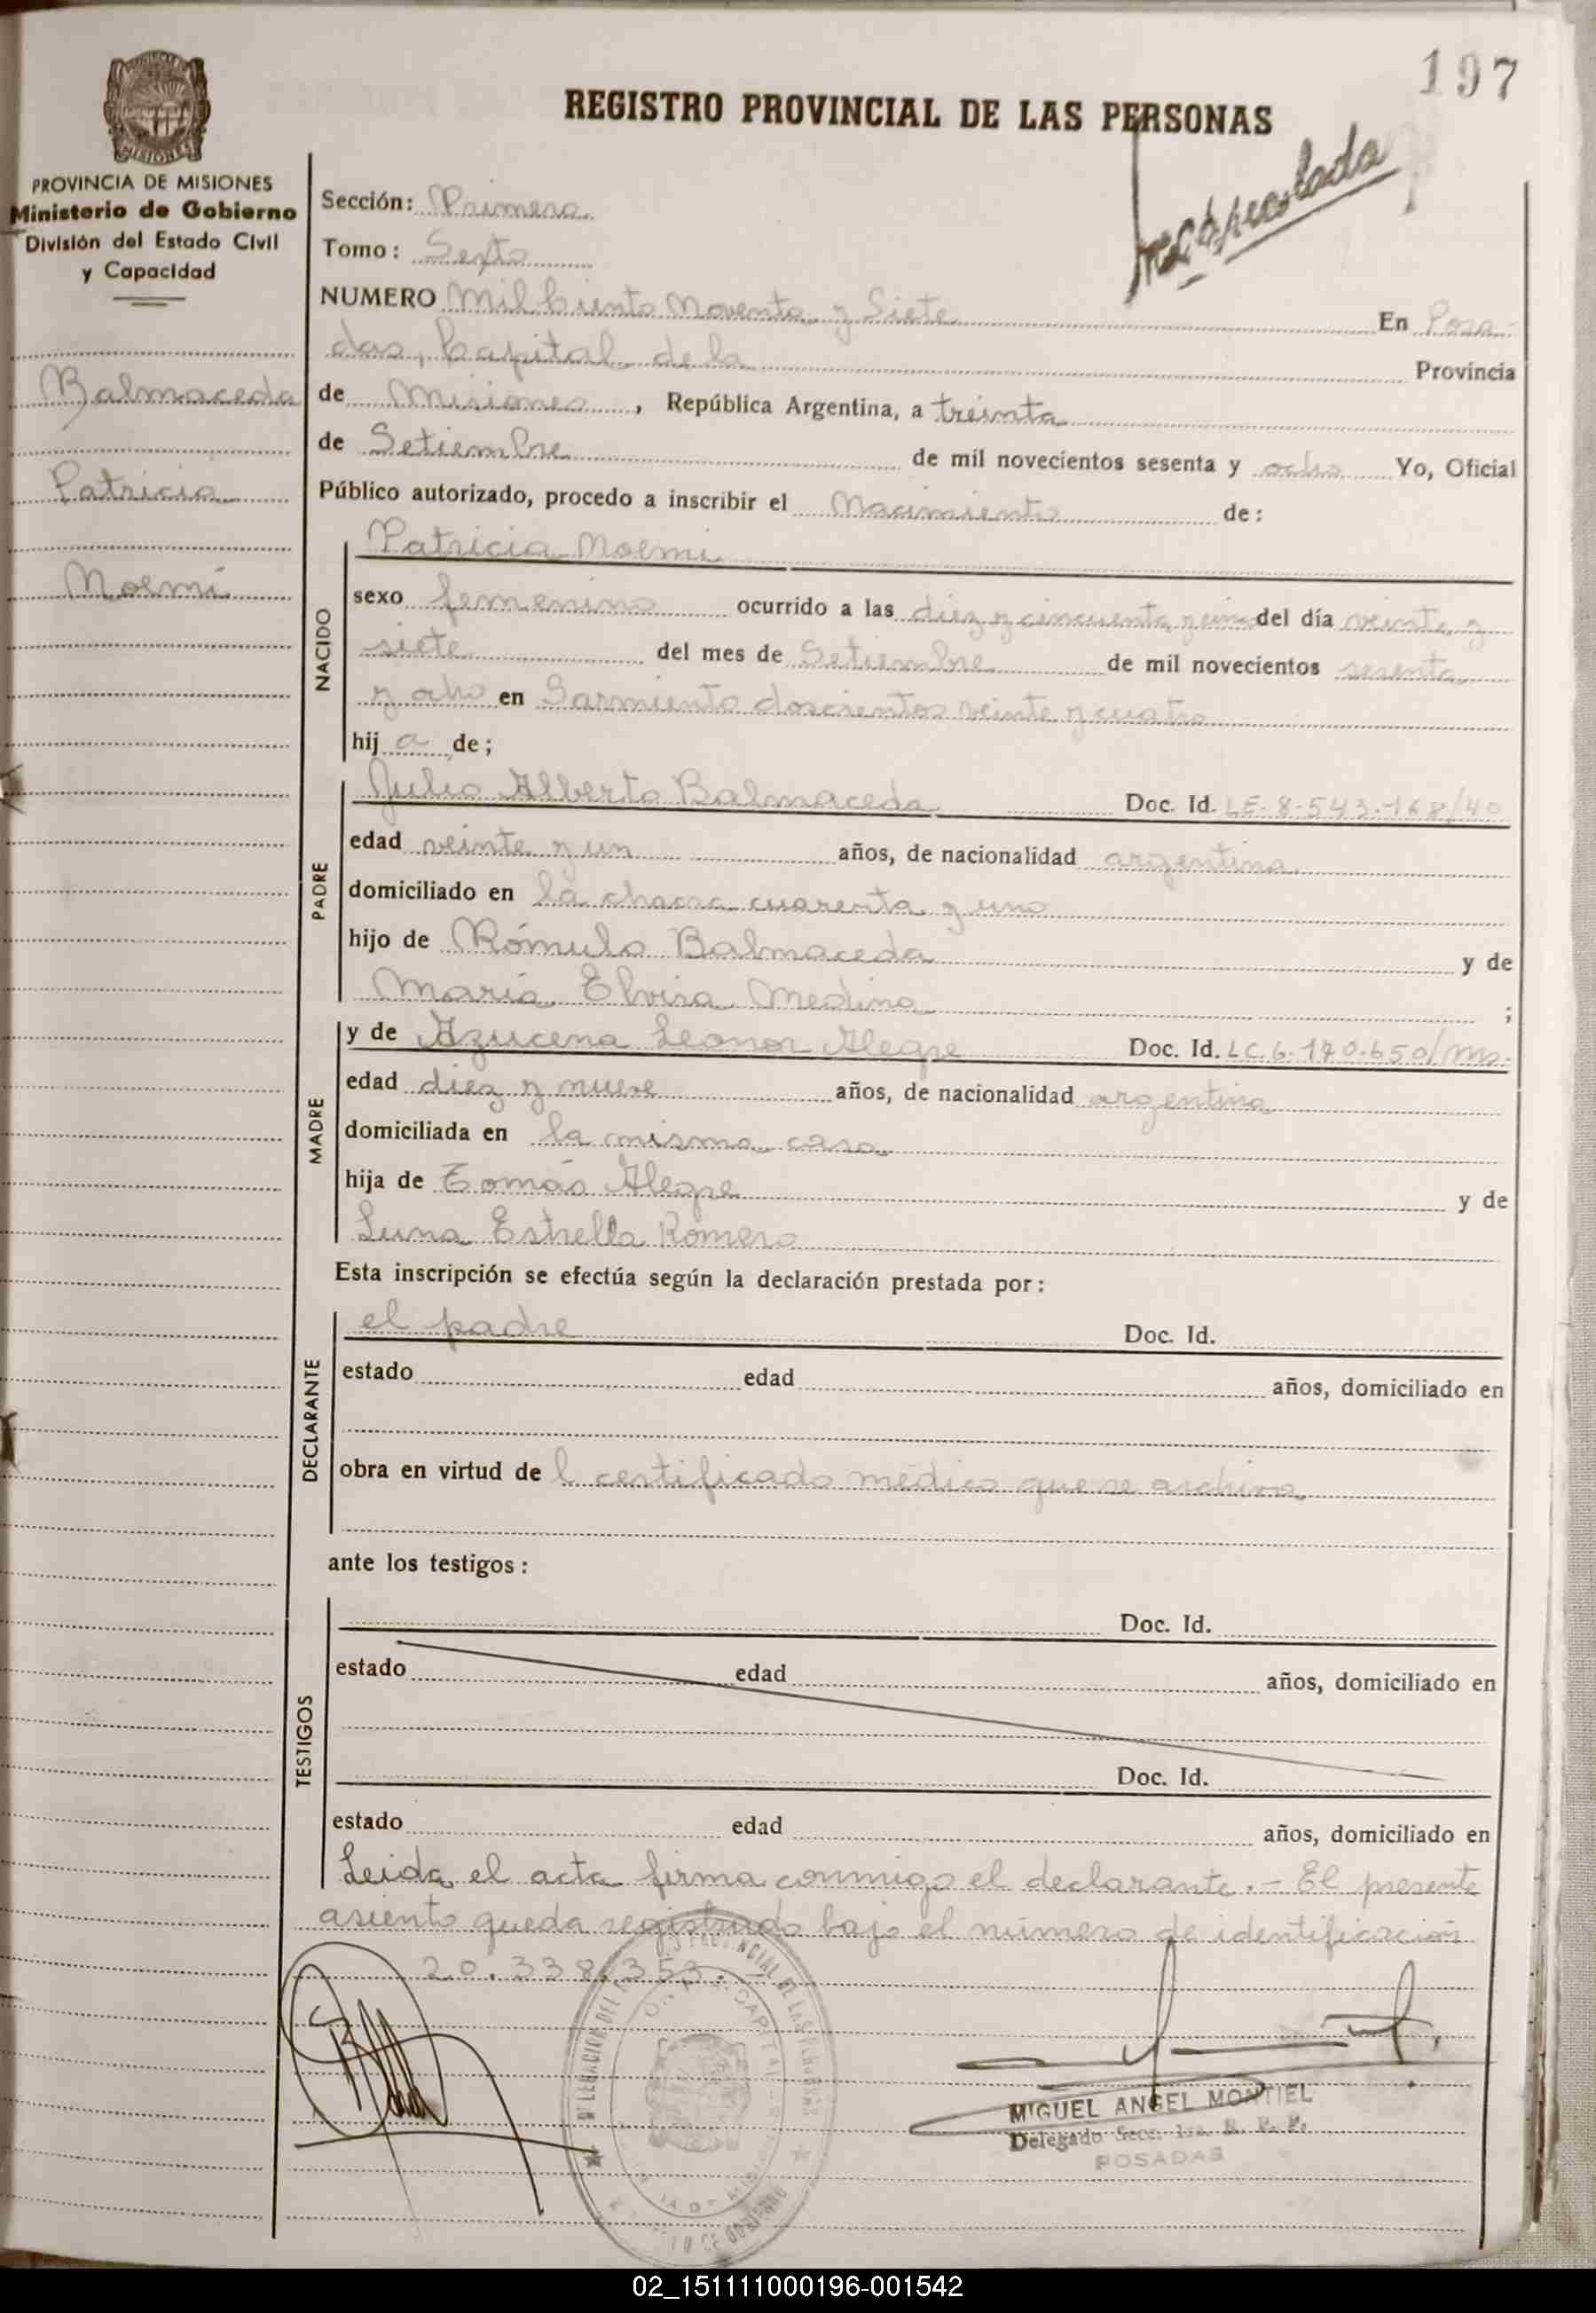 197
REGISTRO PROVINCIAL DE LAS PERSONAS
MISIONES
PROVINCIA DE MISIONES
Ministerio de Gobierno
División del Estado Civil
y Capacidad
Balmaceda
Patricia
Noemí
Sección: Primera
Tomo: Sexto
NUMERO Mil Ciento Noventa y Siete En Posa-
das, Capital de la Provincia
de Misiones, República Argentina, a treinta
de Setiembre de mil novecientos sesenta y ocho Yo, Oficial
Público autorizado, procedo a inscribir el Nacimiento de:
NACIDO
Patricia Noemi
sexo femenino ocurrido a las diez y cincuenta y cinco del día veinte y
siete del mes de Setiembre de mil novecientos sesenta
y ocho en Sarmiento doscientos veinte y cuatro
hij a de;
PADRE
Julio Alberto Balmaceda Doc. Id. LE-8-543.168/40
edad veinte y un años, de nacionalidad argentina
domiciliado en la chacra cuarenta y uno
hijo de Rómulo Balmaceda y de
María Elvira Medina ;
MADRE
y de Azucena Leonor Alegre Doc. Id. LC.6.170.650/Ms.
edad diez y nueve años, de nacionalidad argentina
domiciliada en la misma casa
hija de Tomás Alegre y de
Luna Estrella Romero
Esta inscripción se efectúa según la declaración prestada por:
DECLARANTE
el padre Doc. Id.
estado edad años, domiciliado en
obra en virtud de l certificado médico que se archiva
ante los testigos:
TESTIGOS
Doc. Id.
estado edad años, domiciliado en
Doc. Id.
estado edad años, domiciliado en
Leida el acta firma conmigo el declarante.- El presente
asiento queda registrado bajo el número de identificación
20.338.353.-
MIGUEL ANGEL MONTIEL
Delegado Secc. 1ra. R. P. P.
POSADAS
02_151111000196-001542